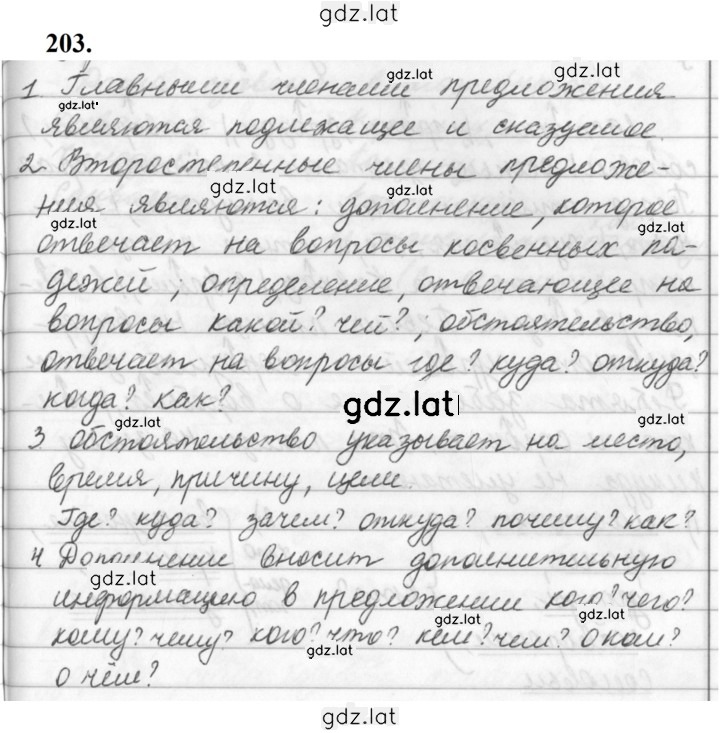 gdz.lat
203.
gdz.lat
1 Главными членами предложения
gdz.lat gdz.lat
являются подлежащее и сказуемое.
2 Второстепенные члены предложе-
gdz.lat gdz.lat
ния являются: дополнение, которое
gdz.lat gdz.lat
отвечает на вопросы косвенных па-
дежей; определение, отвечающее на
вопросы какой? чей?; обстоятельство,
отвечает на вопросы где? куда? откуда?
когда? как?
gdz.lat
gdz.lat gdz.lat
3 обстоятельство указывает на место,
время, причину, цели.
Где? куда? зачем? откуда? почему? как?
4 Дополнение вносит дополнительную
gdz.lat gdz.lat
информацию в предложении кого? чего?
gdz.lat
кому? чему? кого? что? кем? чем? о ком?
gdz.lat gdz.lat
о чём?
gdz.lat